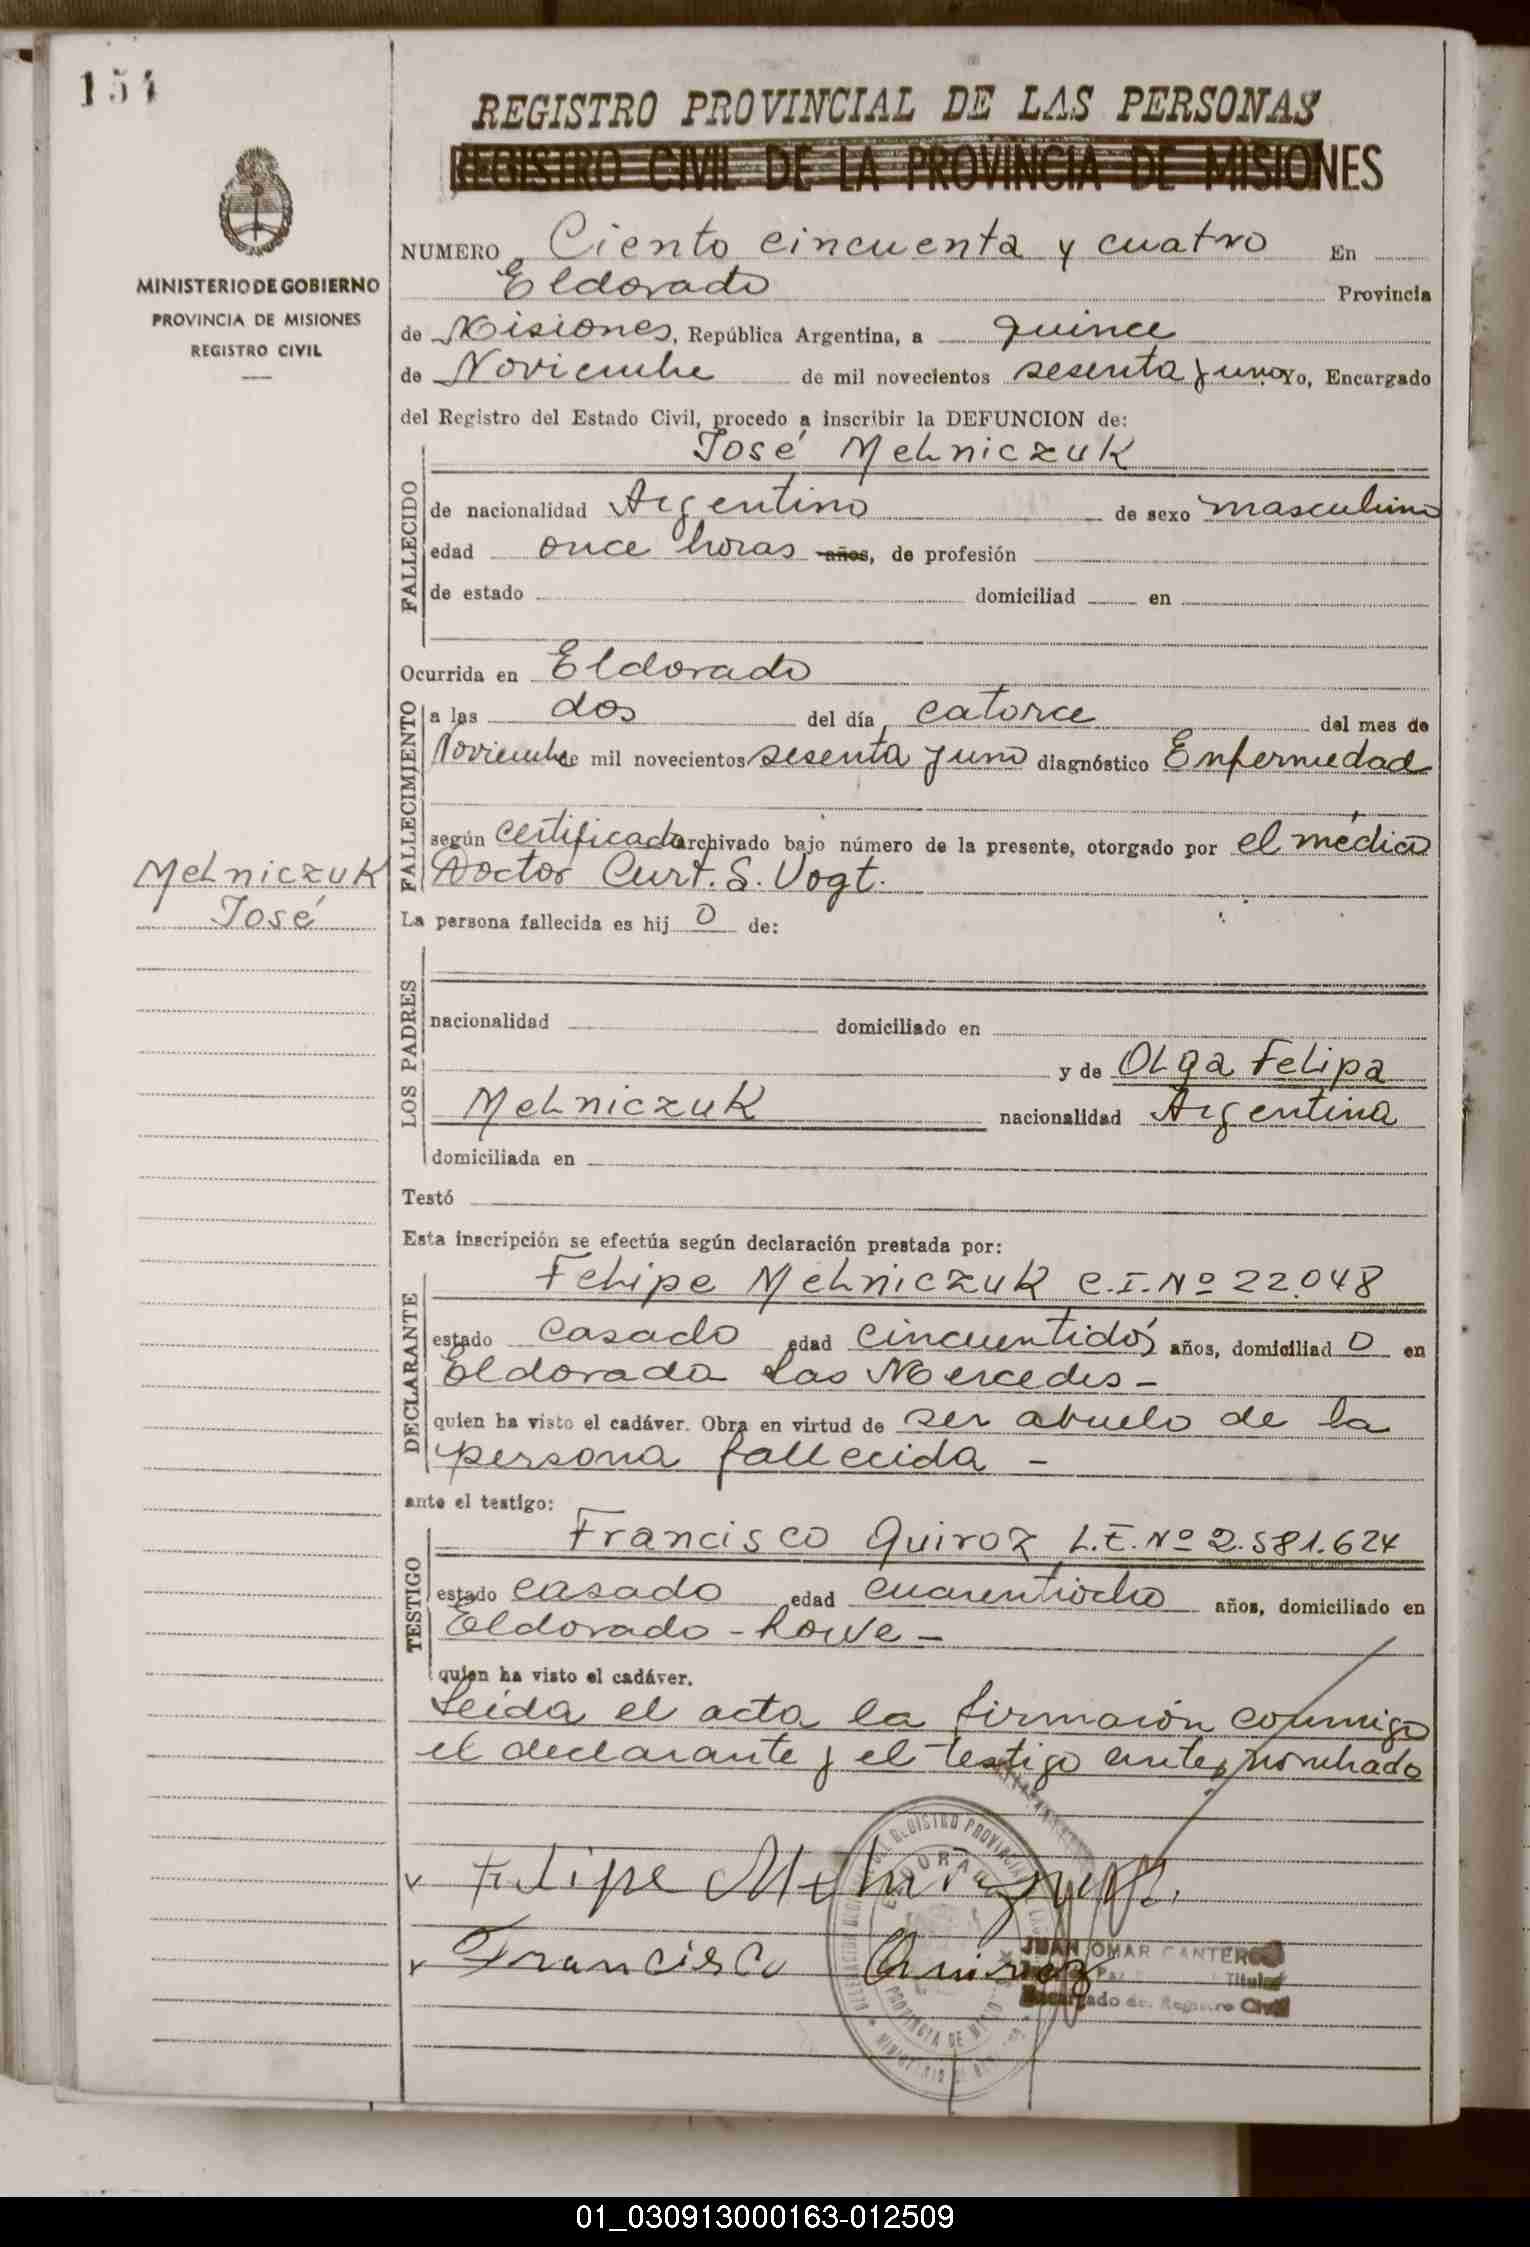 154
REGISTRO PROVINCIAL DE LAS PERSONAS
REGISTRO CIVIL DE LA PROVINCIA DE MISIONES
MINISTERIO DE GOBIERNO
PROVINCIA DE MISIONES
REGISTRO CIVIL
NUMERO Ciento cincuenta y cuatro En
Eldorado Provincia
de Misiones, República Argentina, a quince
de Noviembre de mil novecientos sesenta y uno Yo, Encargado
del Registro del Estado Civil, procedo a inscribir la DEFUNCION de:
José Melniczuk
FALLECIDO
de nacionalidad Argentino de sexo masculino
edad once horas años, de profesión
de estado domiciliad en
Ocurrida en Eldorado
FALLECIMIENTO
a las dos del día catorce del mes de
Noviembre de mil novecientos sesenta y uno diagnóstico Enfermedad
según certificado archivado bajo número de la presente, otorgado por el médico
Doctor Curt. S. Vogt.
Melniczuk
José
La persona fallecida es hij o de:
LOS PADRES
nacionalidad domiciliado en
y de Olga Felipa
Melniczuk nacionalidad Argentina
domiciliada en
Testó
Esta inscripción se efectúa según declaración prestada por:
DECLARANTE
Felipe Melniczuk C.I. Nº 22.048
estado casado edad cincuentidós años, domiciliad o en
Eldorado Las Mercedes -
quien ha visto el cadáver. Obra en virtud de ser abuelo de la
persona fallecida -
ante el testigo:
TESTIGO
Francisco Quiroz L.E. Nº 2.581.624
estado casado edad cuarentiocho años, domiciliado en
Eldorado - Rowe -
quien ha visto el cadáver.
Leída el acta la firmaron conmigo
el declarante y el testigo antes nombrado
Felipe Melniczuk.
Francisco Quiroz
JUAN OMAR CANTERO
Titular
Encargado de. Registro Civil
REGISTRO PROVINCIAL
ELDORADO
PROVINCIA DE
01_030913000163-012509